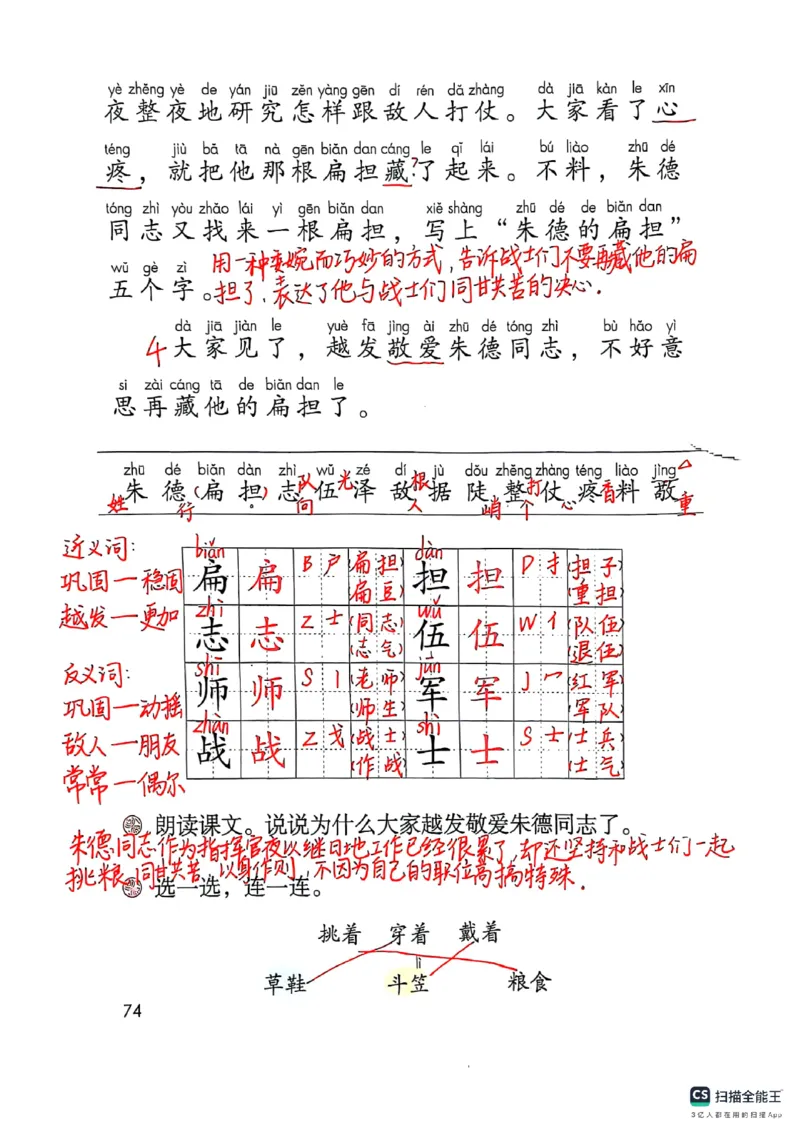 yè zhěng yè de yán jiū zěn yàng gēn dí rén dǎ zhàng dà jiā kàn le xīn
夜整夜地研究怎样跟敌人打仗。大家看了心
téng jiù bǎ tā nà gēn biǎn dan cáng le qǐ lái bú liào zhū dé
疼，就把他那根扁担藏?了起来。不料，朱德
tóng zhì yòu zhǎo lái yì gēn biǎn dan xiě shàng zhū dé de biǎn dan
同志又找来一根扁担，写上“朱德的扁担”
用一种委婉而巧妙的方式，告诉战士们不要再藏他的扁
wǔ gè zì
五个字。担了，表达了他与战士们同甘共苦的决心.
dà jiā jiàn le yuè fā jìng ài zhū dé tóng zhì bù hǎo yì
4大家见了，越发敬爱朱德同志，不好意
si zài cáng tā de biǎn dan le
思再藏他的扁担了。
zhū dé biǎn dàn zhì wǔ zé dí jù dǒu zhěng zhàng téng liào jìng
朱德(扁担)志队伍光泽敌根据陡整打仗疼香料敬
姓 行 向 人 峭 个 心 重
近义词:
巩固一稳固
越发一更加
反义词:
巩固一动摇
敌人一朋友
常常一偶尔
biǎn dàn
扁 扁 B 户 (扁担) (扁豆) 担 担 D 扌 (担子) (重担)
zhì wǔ
志 志 Z 士 (同志) (志气) 伍 伍 W 亻 (队伍) (退伍)
shī jūn
师 师 S 丨 (老师) (师生) 军 军 J 冖 (红军) (军队)
zhàn shì
战 战 Z 戈 (战士) (作战) 士 士 S 士 (士兵) (士气)
朗读课文。说说为什么大家越发敬爱朱德同志了。
朱德同志作为指挥官夜以继日地工作已经很累了,却还坚持和战士们一起
挑粮,同甘共苦,以身作则,不因为自己的职位高搞特殊.
选一选，连一连。
挑着 穿着 戴着
lì
草鞋 斗笠 粮食
74
CS 扫描全能王
3亿人都在用的扫描App